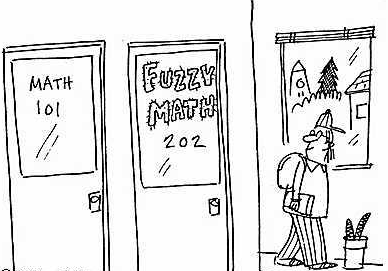 MATH
101
FUZZY
MATH
202